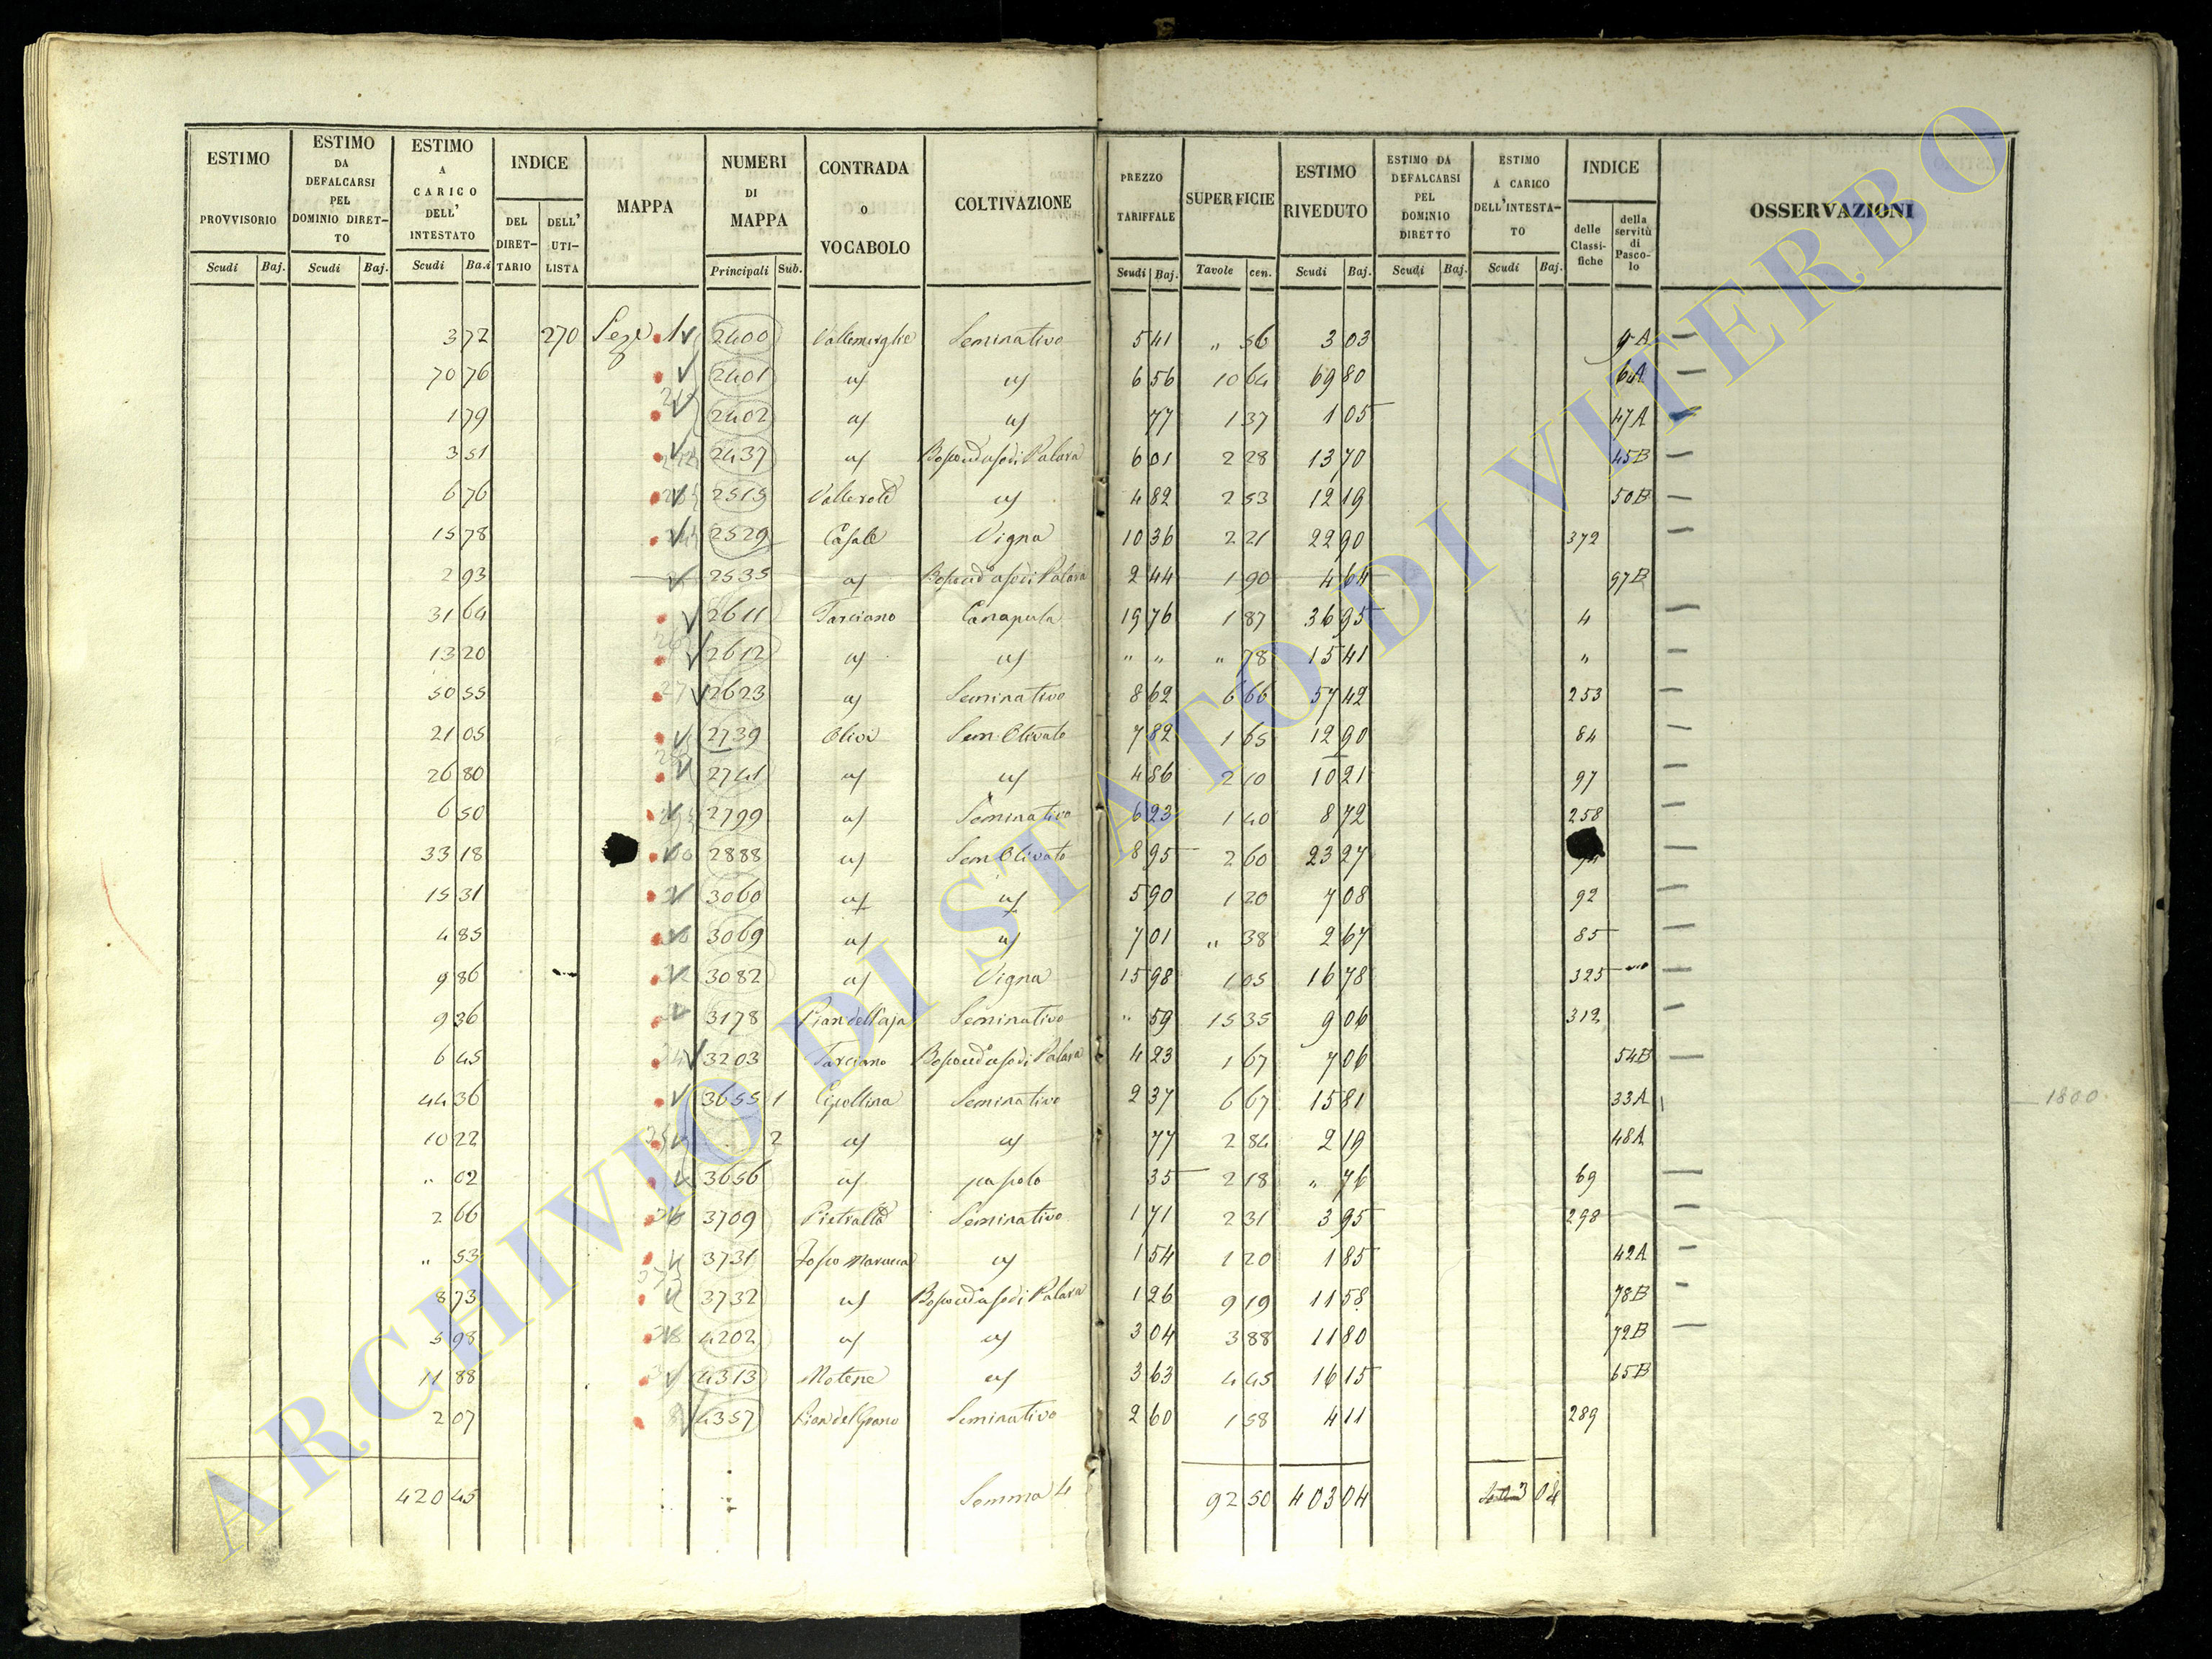 ESTIMO PROVVISORIO Scudi Baj.
ESTIMO DA DEFALCARSI PEL DOMINIO DIRET-TO Scudi Baj.
ESTIMO A CARICO DELL' INTESTATO Scudi Ba.i
INDICE DEL DIRET-TARIO DELL' UTI-LISTA
MAPPA
NUMERI DI MAPPA Principali Sub.
CONTRADA O VOCABOLO
COLTIVAZIONE
PREZZO TARIFFALE Scudi Baj.
SUPERFICIE Tavole cen.
ESTIMO RIVEDUTO Scudi Baj.
ESTIMO DA DEFALCARSI PEL DOMINIO DIRETTO Scudi Baj.
ESTIMO A CARICO DELL'INTESTA-TO Scudi Baj.
INDICE delle Classi-fiche della servitù di Pasco-lo
OSSERVAZIONI
3 72 270 1 2400 Seminativo 5 41 " 56 3 03
70 76 2401 6 56 10 64 69 80 64A
1 79 2402 77 1 37 1 05 47A
3 51 2437 6 01 2 28 13 70 45B
6 76 2515 4 82 2 53 12 19 50B
15 78 2529 Casale Vigna 10 36 2 21 22 90 372
2 93 2535 2 44 1 90 4 64 97B
31 64 2611 Tarciano Canapula 19 76 1 87 36 95 4
13 20 2612 " " " 78 15 41 "
50 55 2623 Seminativo 8 62 6 66 57 42 253
21 05 2739 Olivi Sem. Olivato 7 82 1 65 12 90 84
26 80 2741 4 86 2 10 10 21 97
6 50 2799 Seminativo 6 23 1 40 8 72 258
33 18 2888 Sem Olivato 8 95 2 60 23 27
15 31 3060 5 90 1 20 7 08 92
4 85 3069 7 01 " 38 2 67 85
9 86 3082 Vigna 15 98 1 05 16 78 325
9 36 3178 Pian dell'aja Seminativo " 59 15 35 9 06 312
6 45 3203 Tarciano 4 23 1 67 7 06 54B
44 36 3655 1 Cipollina Seminativo 2 37 6 67 15 81 33A 1800
10 22 2 77 2 84 2 19 48A
" 02 3656 pascolo 35 2 18 " 76 69
2 66 3709 Seminativo 1 71 2 31 3 95 298
" 53 3731 1 54 1 20 1 85 42A
8 73 3732 1 26 9 19 11 58 78B
5 98 4202 3 04 3 88 11 80 72B
11 88 4313 3 63 4 45 16 15 65B
2 07 4357 Seminativo 2 60 1 58 4 11 289
420 45 Somma 4 92 50 403 04 403 04
ARCHIVIO DI STATO DI VITERBO